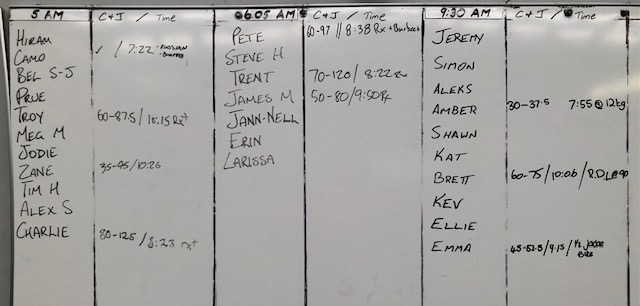 5 AM C & J / Time
HIRAM
CAMO / 7:22 - RUSSIAN
BEL S-J
PRUE
TROY 60-87.5 / 10:15 Rx+
MEG M
JODIE
ZANE 35-95/10:26
TIM H
ALEX S
CHARLIE 80-125 / 8:23 rx+
06.05 AM C & J / Time
PETE 60-97 // 8:38 Rx + Burpees
STEVE H
TRENT 70-120 / 8:22 Rx
JAMES M 50-80/9:50 Rx
JANN-NELL
ERIN
LARISSA
9:30 AM C & J / Time
JEREMY
SIMON
ALEKS
AMBER 30-37.5 7:55 @ 12kg
SHAWN
KAT
BRETT 60-75/10:06/R.DL@90
KEV
ELLIE
EMMA 45-52.5/9:15/